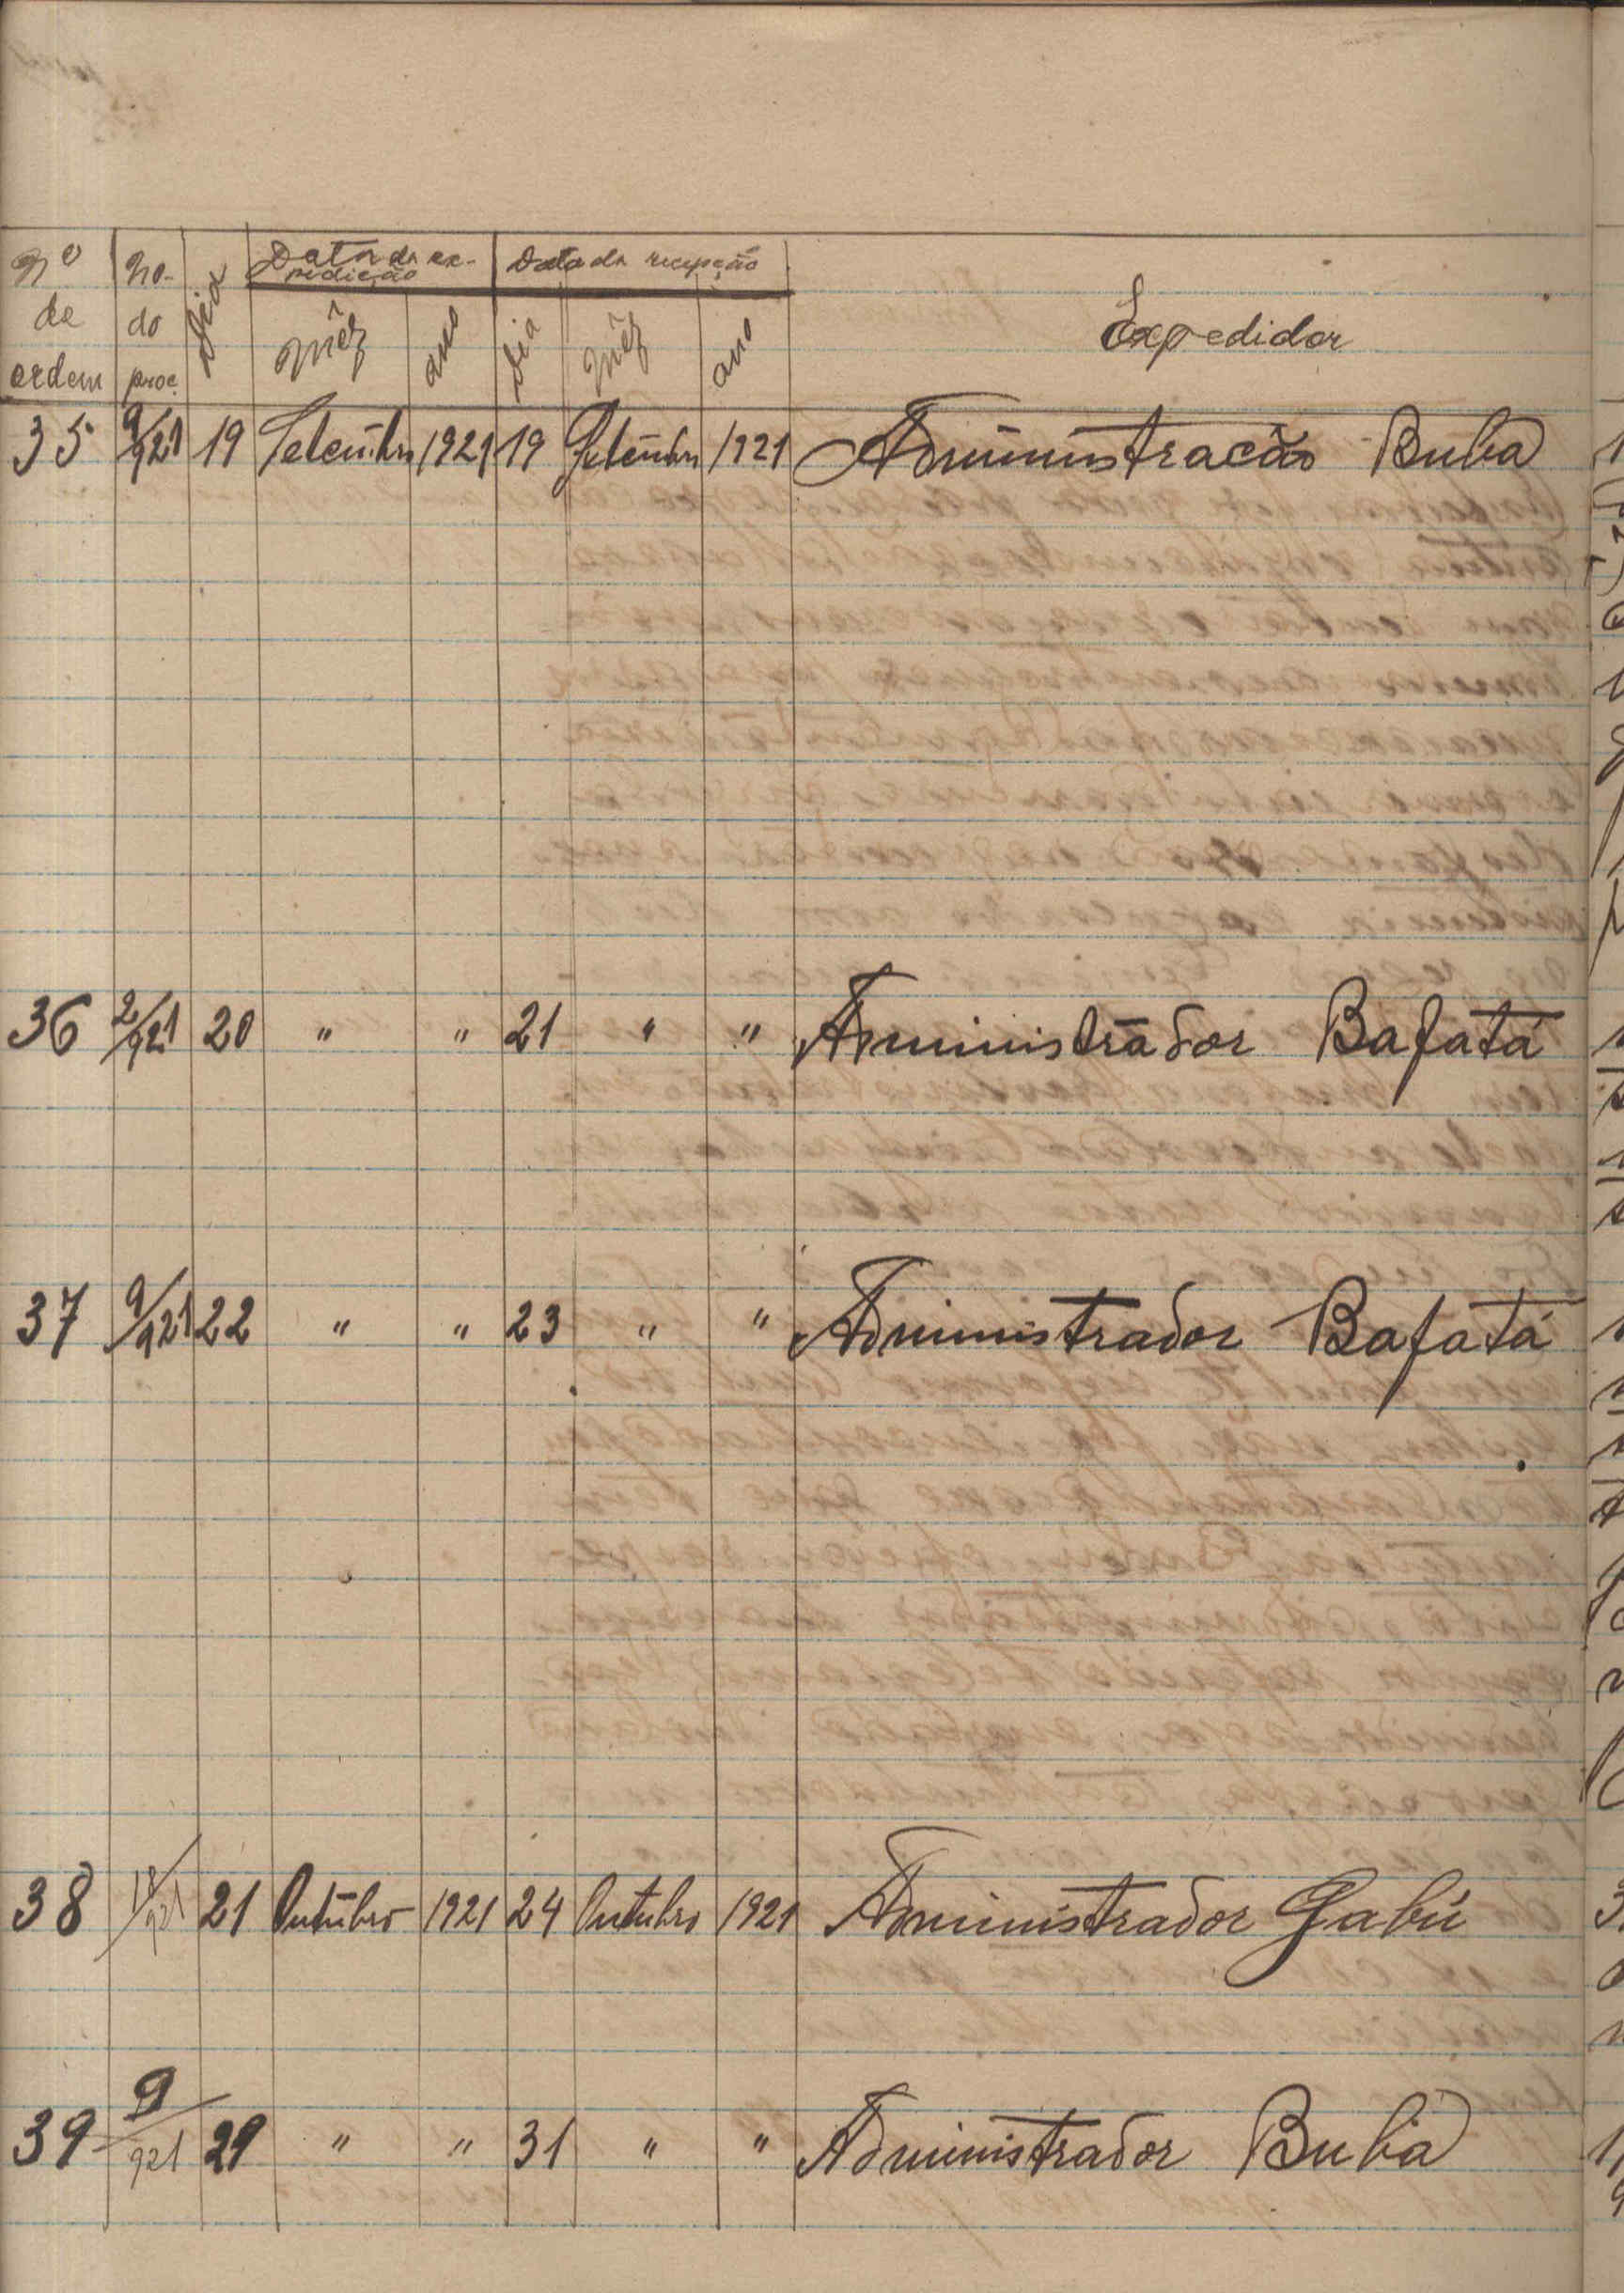 Nº de ordem | No. do proc. | Dia | Data da expedição | Data da recepção | Expedidor
Mêz | ano | Dia | Mêz | ano
35 | 9/921 | 19 | Setembro | 1921 | 19 | Setembro | 1921 | Administração Buba
36 | 2/921 | 20 | " | " | 21 | " | " | Administrador Bafatá
37 | 9/921 | 22 | " | " | 23 | " | " | Administrador Bafatá
38 | 21 | Outubro | 1921 | 24 | Outubro | 1921 | Administrador Gabú
39 | 9/921 | 29 | " | " | 31 | " | " | Administrador Buba